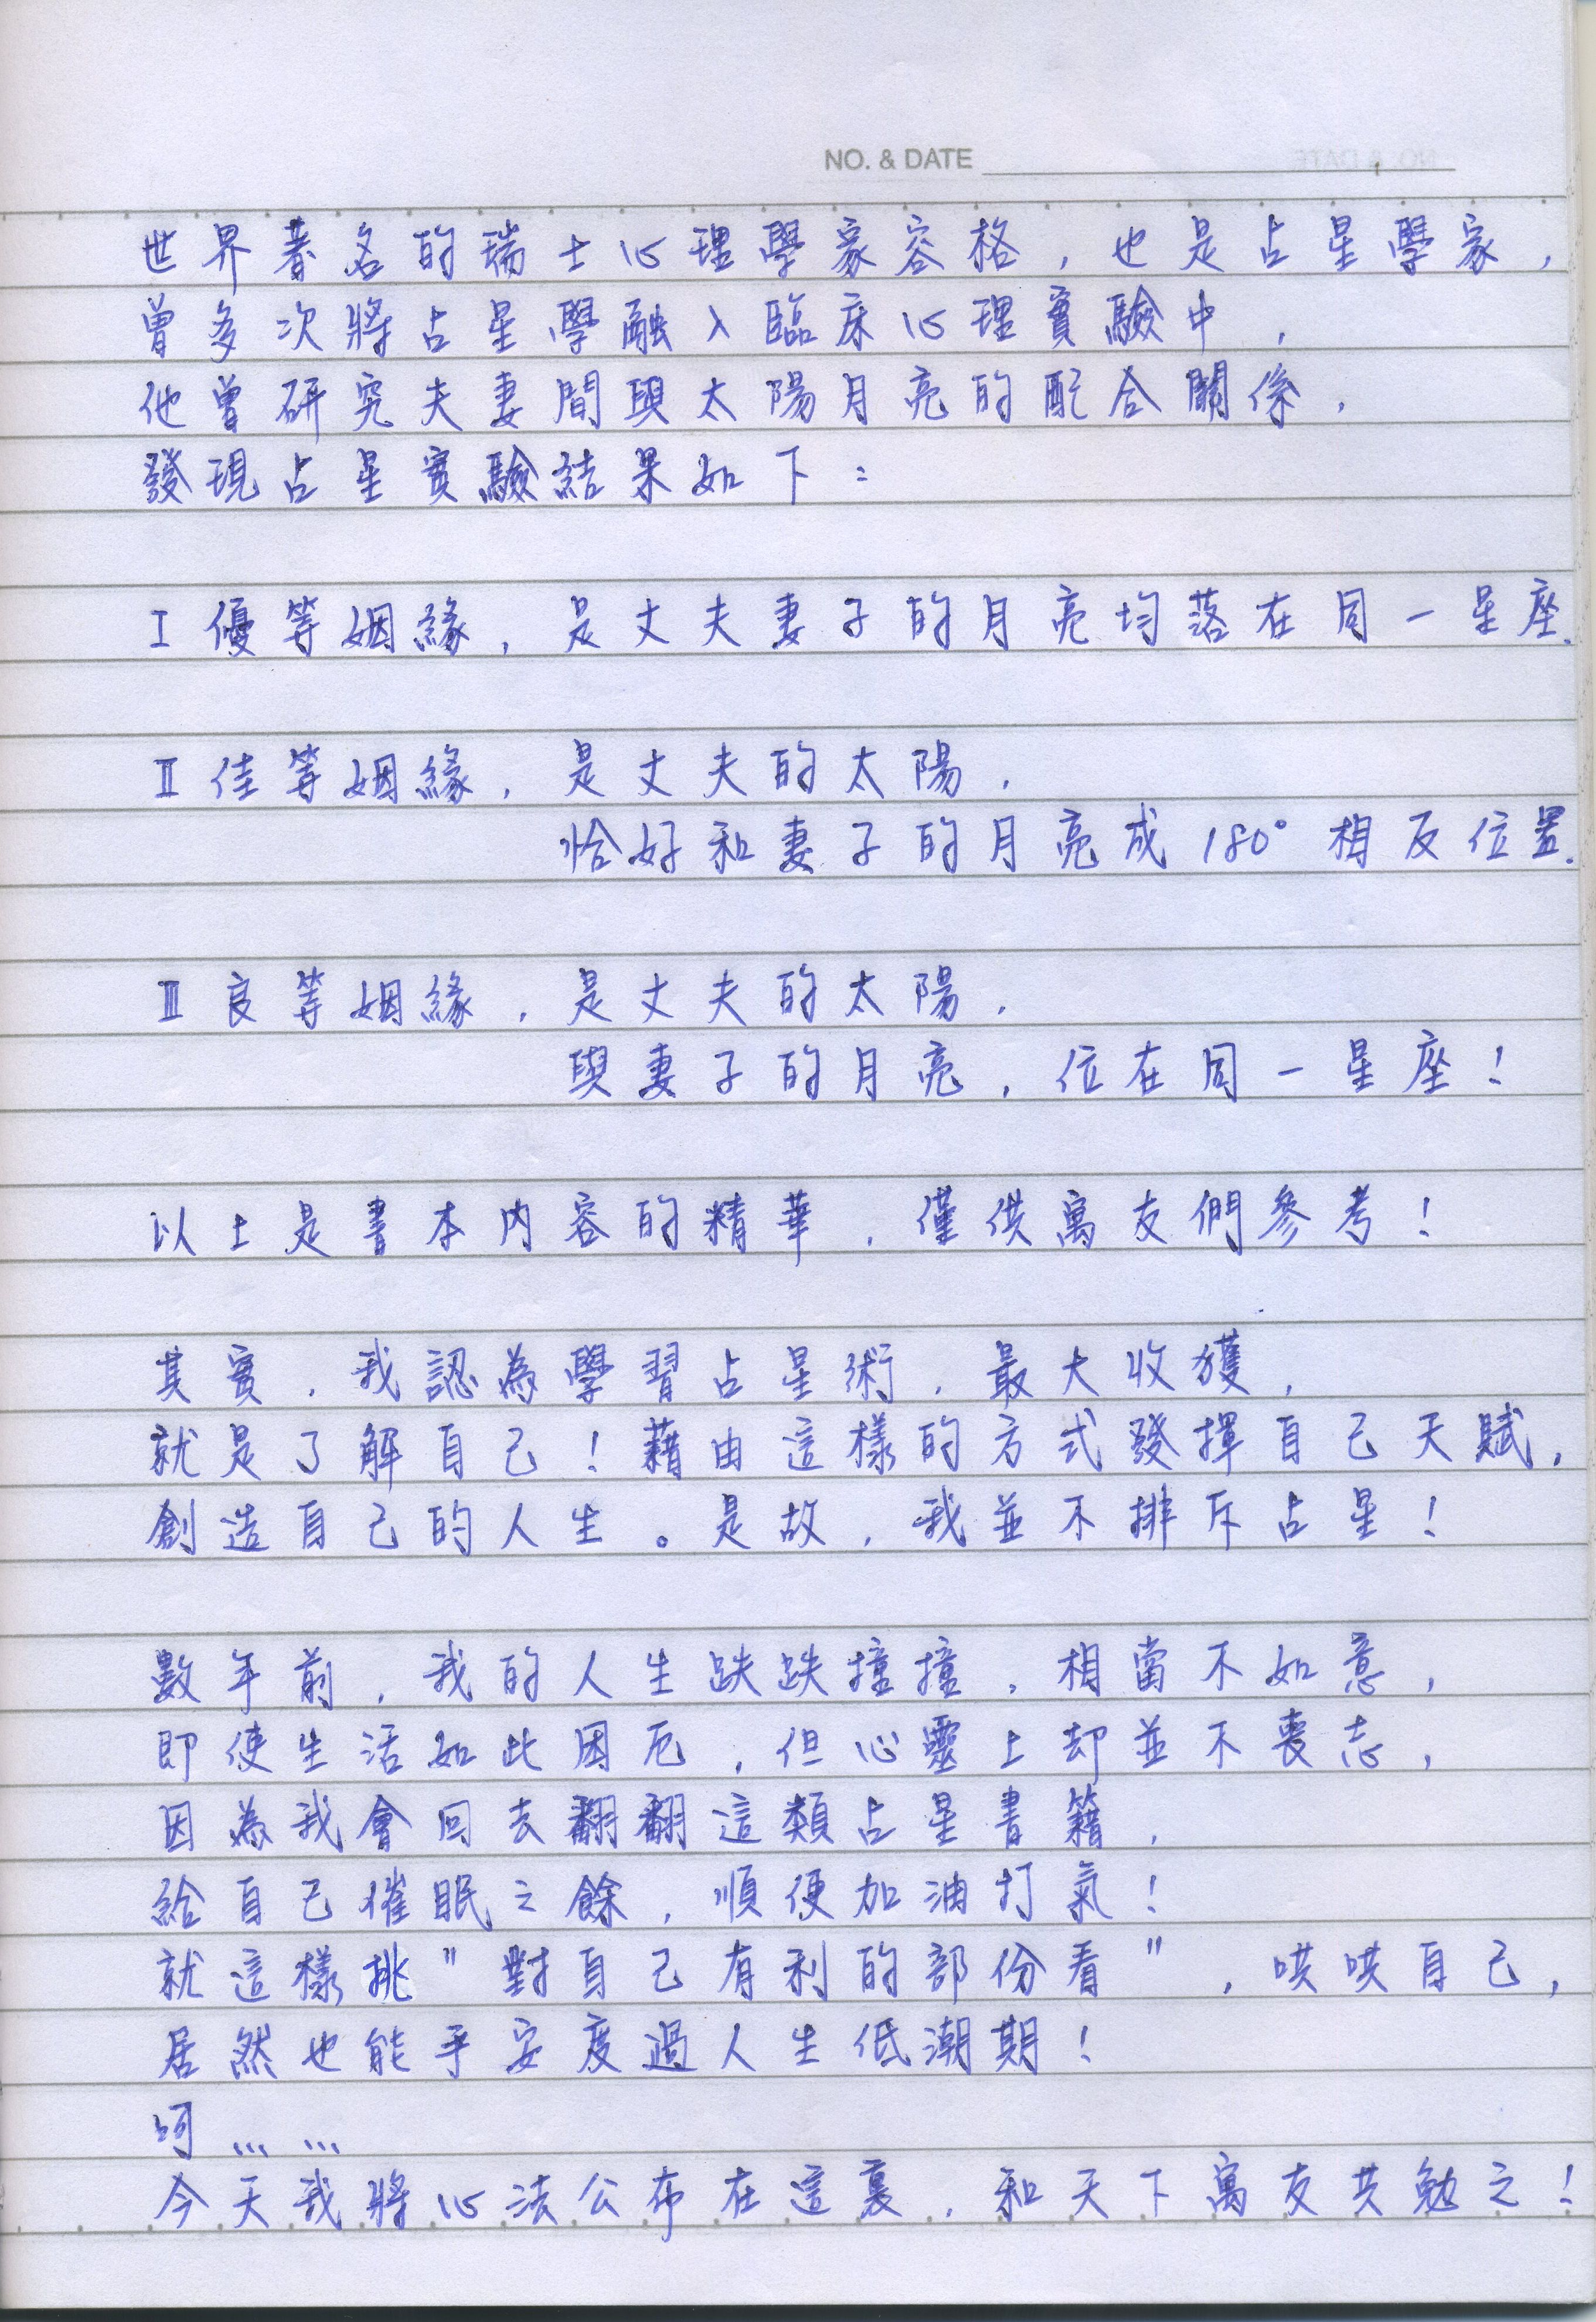 NO. & DATE
世界著名的瑞士心理學家容格，也是占星學家，
曾多次將占星學融入臨床心理實驗中，
他曾研究夫妻間與太陽月亮的配合關係，
發現占星實驗結果如下：
I 優等姻緣，是丈夫妻子的月亮均落在同一星座．
II 佳等姻緣，是丈夫的太陽，
恰好和妻子的月亮成180°相反位置．
III 良等姻緣，是丈夫的太陽，
與妻子的月亮，位在同一星座！
以上是書本內容的精華，僅供萬友們參考！
其實，我認為學習占星術，最大收獲，
就是了解自己！藉由這樣的方式發揮自己天賦，
創造自己的人生。是故，我並不排斥占星！
數年前，我的人生跌跌撞撞，相當不如意，
即使生活如此困厄，但心靈上却並不喪志，
因為我會回去翻翻這類占星書籍，
給自己催眠之餘，順便加油打氣！
就這樣挑"對自己有利的部份看"，哄哄自己，
居然也能平安度過人生低潮期！
呵……
今天我將心法公布在這裏，和天下萬友共勉之！